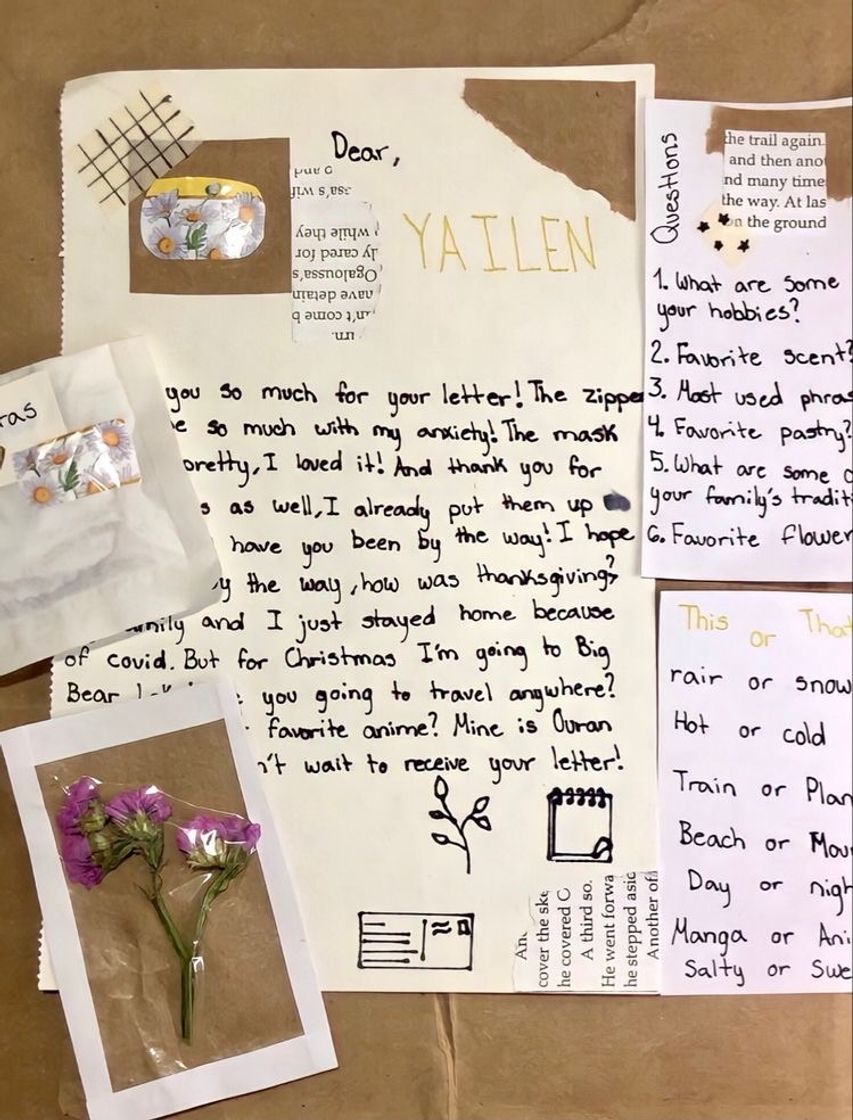 Dear,
YAILEN
you so much for your letter! The zipper
so much with my anxiety! The mask
pretty, I loved it! And thank you for
as well, I already put them up
have you been by the way! I hope
the way, how was thanksgiving?
and I just stayed home because
of covid. But for Christmas I'm going to Big
Bear you going to travel anywhere?
favorite anime? Mine is Ouran
wait to receive your letter!
ssa's
while they
ly cared for
Ogaloussa's
have detain
n't come b
urn.
cover the
he covered
A third so.
He went forwa
he stepped asid
Another of
Questions
the trail again.
and then
nd many time
the way. At las
on the ground
1. What are some
your hobbies?
2. Favorite scent?
3. Most used phras
4. Favorite pastry?
5. What are some
your family's tradit
6. Favorite flower
This or That
rair or snow
Hot or cold
Train or Plan
Beach or Mou
Day or nigh
Manga or Ani
Salty or Swe
ras